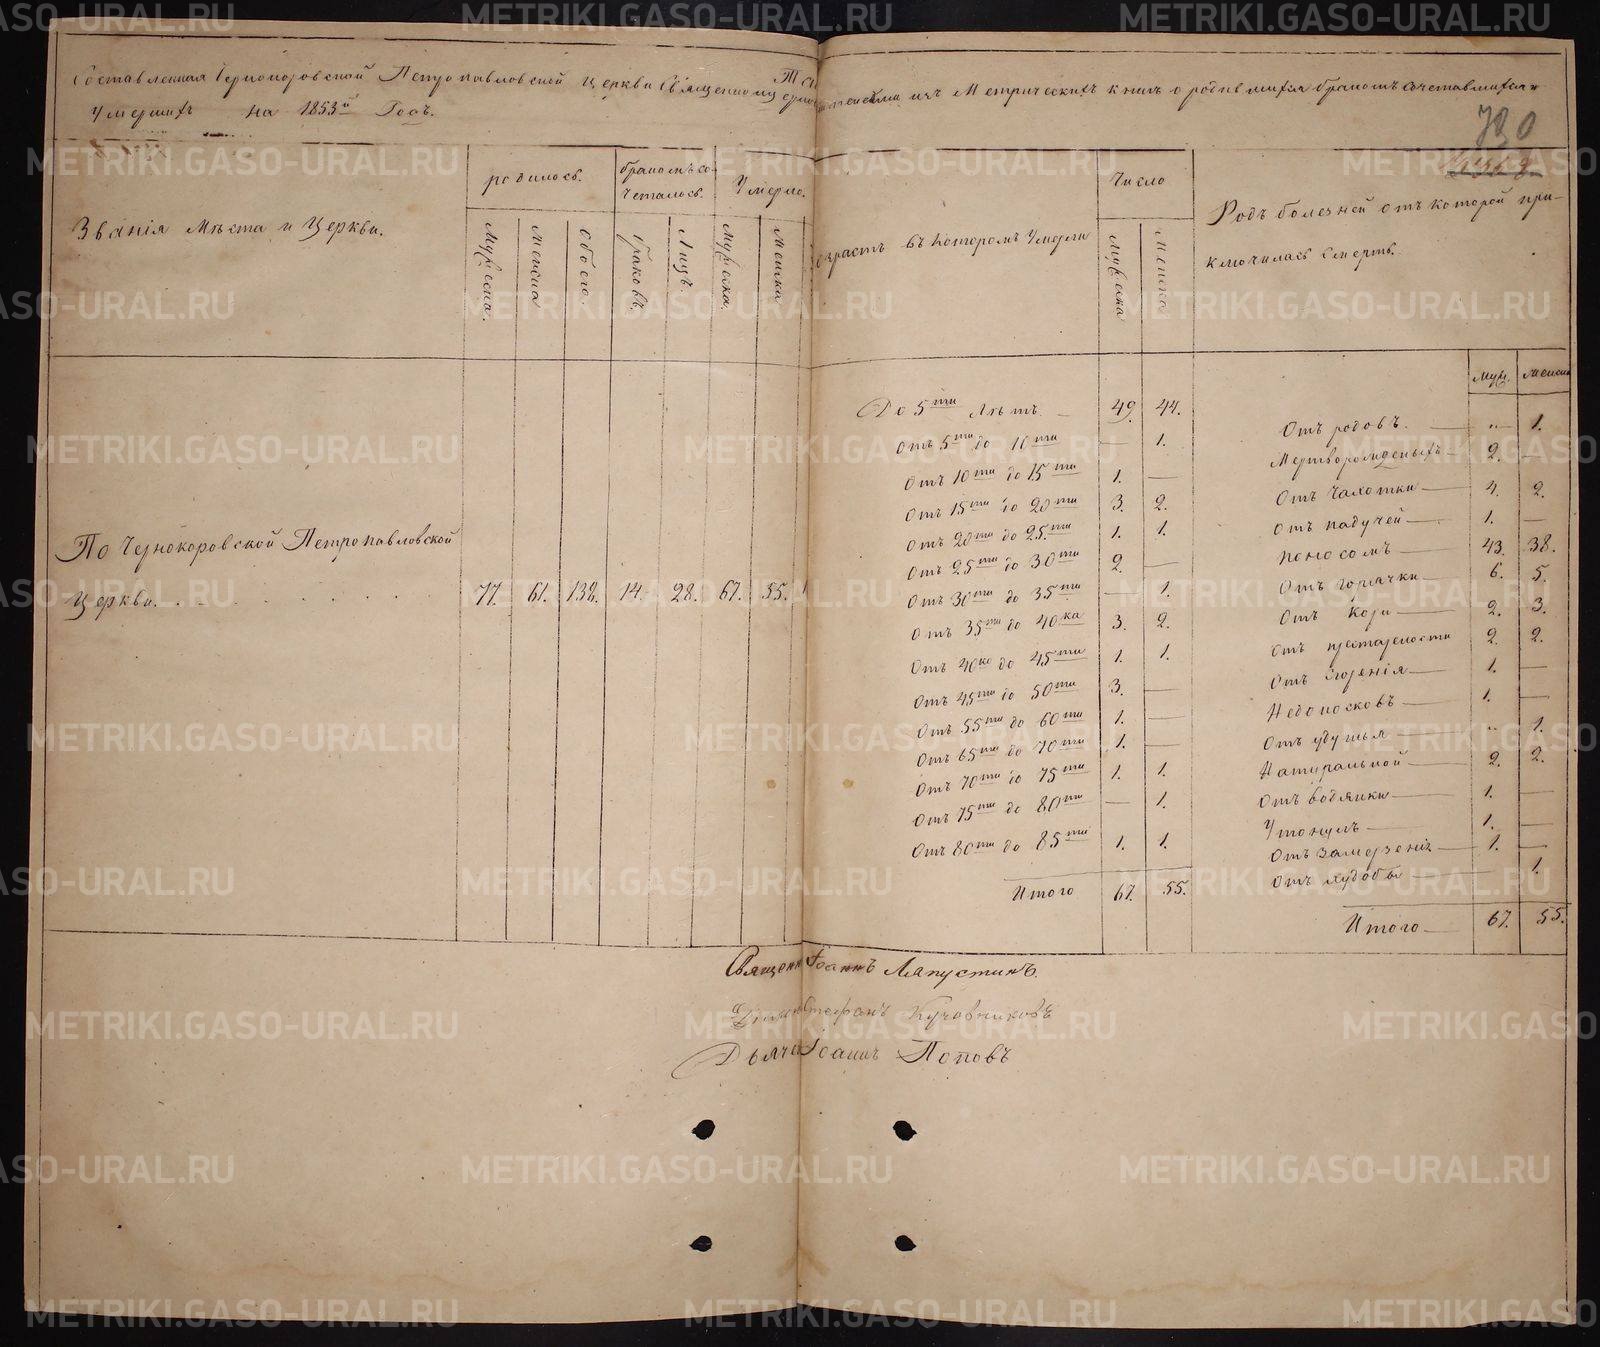 Составленная Чернокоровской Петропавловской Церкви Священноцерковно из Метрических книг о родившихся бракомъ сочетавшихся и
Умершихъ на 1853й Годъ.
780
Званія Мѣста и Церкви.
родилось.
бракомъ со-
четалось.
Умерло.
Возрастъ въ которомъ Умерли
Число
Родъ болезней отъ которой при-
ключилась Смерть.
Мужеска. Женска Обоего. браковъ. Лицъ. Мужеска. Женска Мужеска Женска
Муж. Женска
По Чернокоровской Петропавловской
Церкви. 77. 61. 138. 14. 28. 67. 55.
До 5ти Лѣтъ — 49. 44.
Отъ 5ти до 10ти — 1.
Отъ 10ти до 15ти 1. —
Отъ 15ти до 20ти 3. 2.
Отъ 20ти до 25ти 1. 1.
Отъ 25ти до 30ти 2. —
Отъ 30ти до 35ти — 1.
Отъ 35ти до 40ка 3. 2.
Отъ 40ко до 45ти 1. 1.
Отъ 45ти до 50ти 3. —
Отъ 55ти до 60ти 1. —
Отъ 65ти до 70ти 1. —
Отъ 70ти до 75ти 1. 1.
Отъ 75ти до 80ти — 1.
Отъ 80ти до 85ти 1. 1.
Итого 67. 55.
Отъ родовъ. — „ 1.
Мертворожденыхъ — 2. —
Отъ Чахотки — 4. 2.
Отъ падучей — 1. —
поносомъ — 43. 38.
Отъ горячки — 6. 5.
Отъ Кори — 2. 3.
Отъ престарелости 2. 2.
Отъ згоренія — 1. —
Недоносковъ — 1. —
Отъ удушья — „ 1.
Натуральной — 2. 2.
Отъ водянки — 1. —
Утонулъ — 1. —
Отъ замерзеніе — 1. —
Отъ худобы — 1.
Итого — 67. 55.
Священн Іоаннъ Ляпустинъ.
Діак Стефанъ Кучовниковъ
Дьячо Іоаннъ Поповъ
METRIKI.GASO-URAL.RU